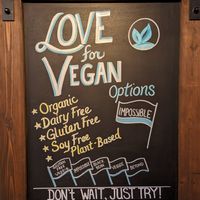 LOVE
for
VEGAN
Options
Organic
Dairy Free
Gluten Free
Soy Free
Plant-Based
IMPOSSIBLE
VEGGIE
BEYOND
DON'T WAIT, JUST TRY!